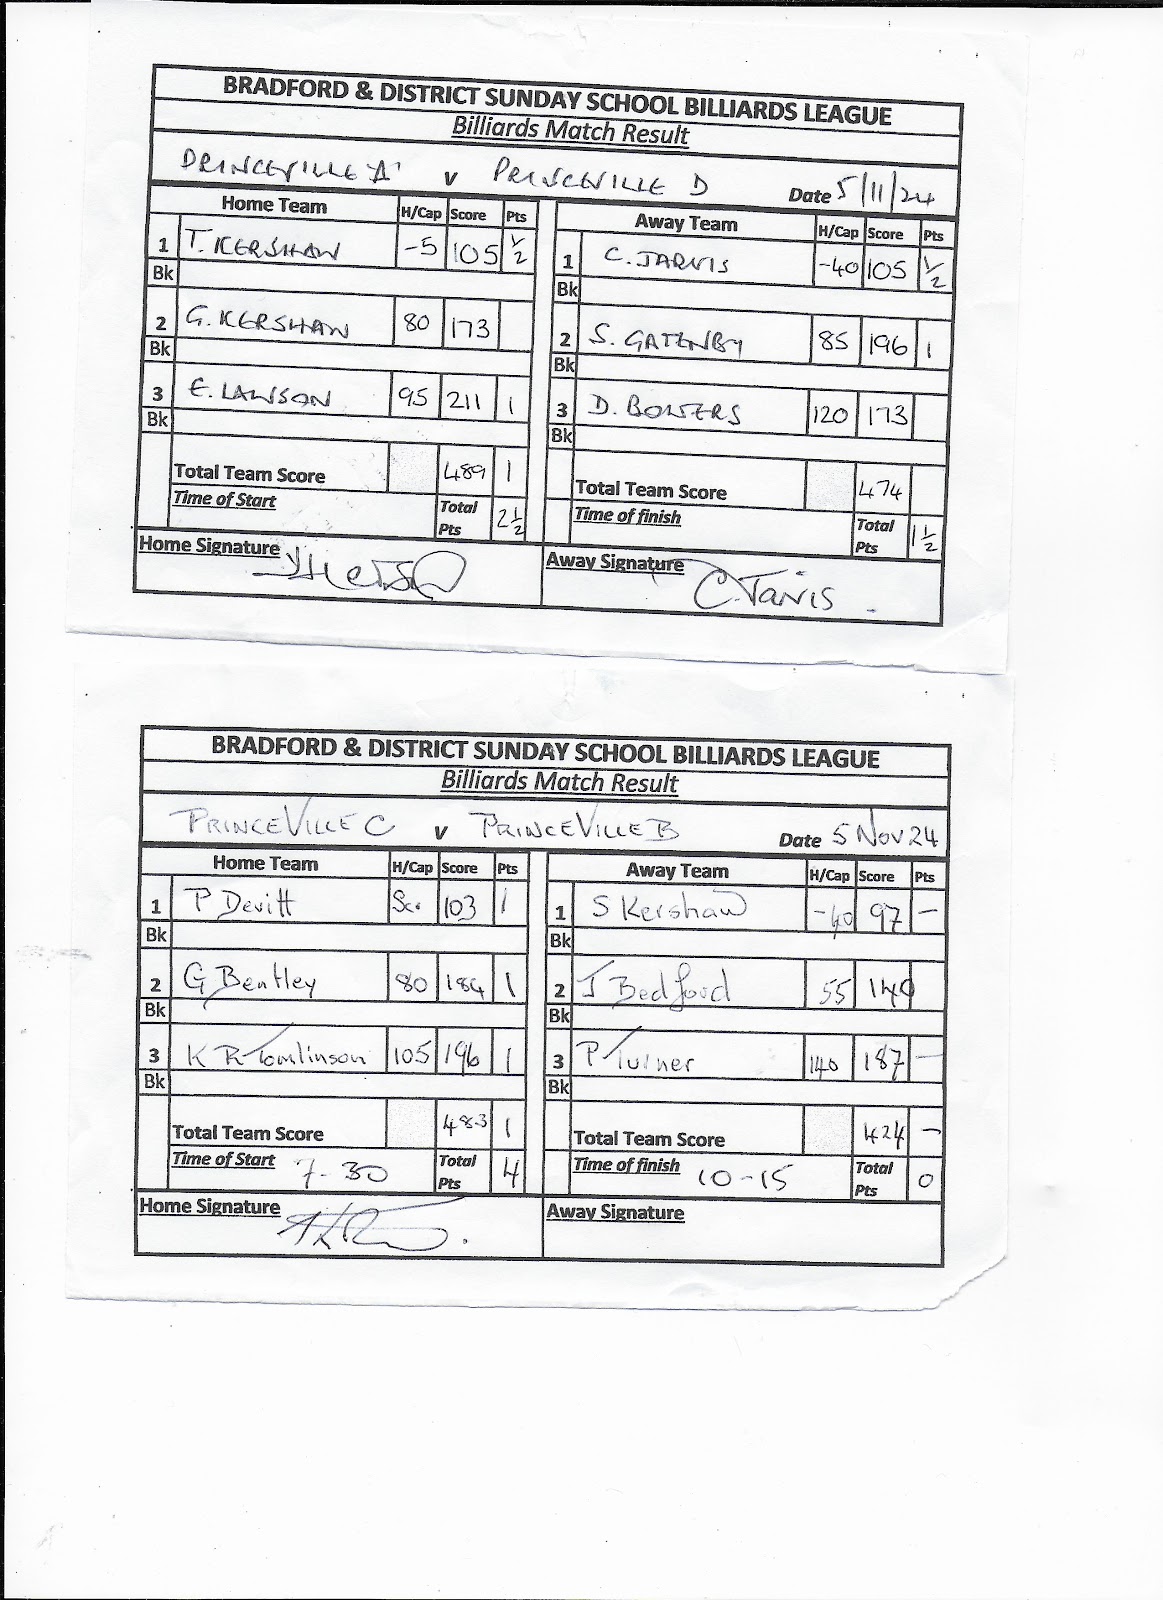 BRADFORD & DISTRICT SUNDAY SCHOOL BILLIARDS LEAGUE
Billiards Match Result
PRINCEVILLE 'A' v PRINCEVILLE D Date 5/11/24
Home Team H/Cap Score Pts Away Team H/Cap Score Pts
1 T. KERSHAW -5 105 1/2 1 C. JARVIS -40 105 1/2
Bk Bk
2 G. KERSHAW 80 173 2 S. GATENBY 85 196 1
Bk Bk
3 E. LAWSON 95 211 1 3 D. BOWERS 120 173
Bk Bk
Total Team Score 489 1 Total Team Score 474
Time of Start Total Pts 2 1/2 Time of finish Total Pts 1 1/2
Home Signature Away Signature C. Jarvis
BRADFORD & DISTRICT SUNDAY SCHOOL BILLIARDS LEAGUE
Billiards Match Result
PRINCEVILLE C v PRINCEVILLE B Date 5 Nov 24
Home Team H/Cap Score Pts Away Team H/Cap Score Pts
1 P Devitt Scr 103 1 1 S Kershaw -40 97 –
Bk Bk
2 G Bentley 80 184 1 2 J Bedford 55 140
Bk Bk
3 K R Tomlinson 105 196 1 3 P Turner 140 187 –
Bk Bk
Total Team Score 483 1 Total Team Score 424 –
Time of Start 7-30 Total Pts 4 Time of finish 10-15 Total Pts 0
Home Signature Away Signature